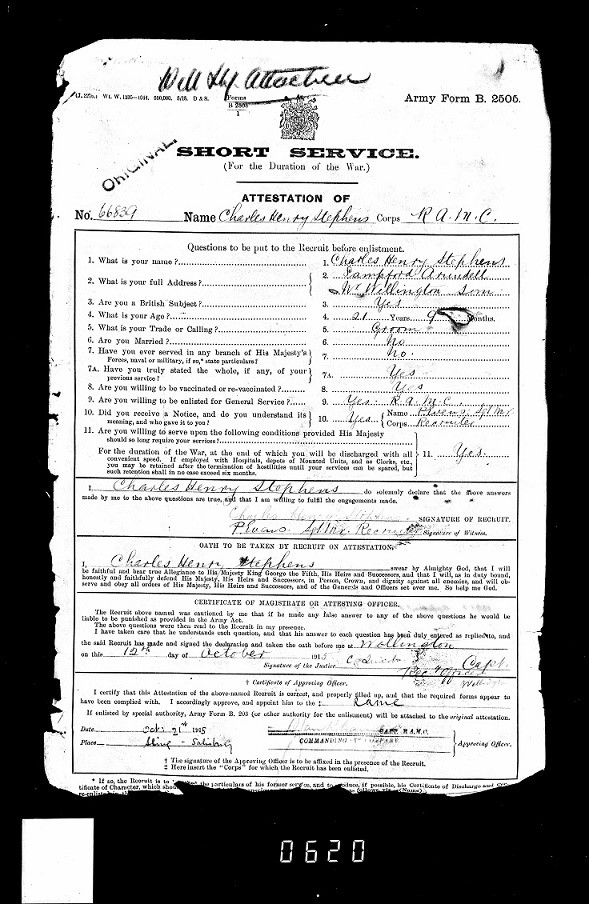 Will Attached
Wt. W. 1195—1044. 250,000. 5/15. D & S.
Forms
B 2505
1
Army Form B. 2505.
ORIGINAL
SHORT SERVICE.
(For the Duration of the War.)
ATTESTATION OF
No. 66839 Name Charles Henry Stephens Corps R. A. M. C.
Questions to be put to the Recruit before enlistment.
1. What is your name? 1. Charles Henry Stephens
2. What is your full Address? 2. Sampford Arundell
Nr Wellington Som
3. Are you a British Subject? 3. Yes
4. What is your Age? 4. 21 Years 9 Months.
5. What is your Trade or Calling? 5. Groom
6. Are you Married? 6. No
7. Have you ever served in any branch of His Majesty's
Forces, naval or military, if so,* state particulars? 7. No.
7A. Have you truly stated the whole, if any, of your
previous service? 7A. Yes
8. Are you willing to be vaccinated or re-vaccinated? 8. Yes
9. Are you willing to be enlisted for General Service? 9. Yes R. A. M. C.
10. Did you receive a Notice, and do you understand its
meaning, and who gave it to you? 10. Yes Name P. Evans
Corps Recruiter
11. Are you willing to serve upon the following conditions provided His Majesty
should so long require your services?
For the duration of the War, at the end of which you will be discharged with all
convenient speed. If employed with Hospitals, depots of Mounted Units, and as Clerks, etc.,
you may be retained after the termination of hostilities until your services can be spared, but
such retention shall in no case exceed six months. 11. Yes.
I, Charles Henry Stephens do solemnly declare that the above answers
made by me to the above questions are true, and that I am willing to fulfil the engagements made.
Charles Henry Stephens SIGNATURE OF RECRUIT.
P. Evans Recruiter Signature of Witness.
OATH TO BE TAKEN BY RECRUIT ON ATTESTATION.
I, Charles Henry Stephens swear by Almighty God, that I will
be faithful and bear true Allegiance to His Majesty King George the Fifth, His Heirs and Successors, and that I will, as in duty bound,
honestly and faithfully defend His Majesty, His Heirs and Successors, in Person, Crown, and dignity against all enemies, and will ob-
serve and obey all orders of His Majesty, His Heirs and Successors, and of the Generals and Officers set over me. So help me God.
CERTIFICATE OF MAGISTRATE OR ATTESTING OFFICER.
The Recruit above named was cautioned by me that if he made any false answer to any of the above questions he would be
liable to be punished as provided in the Army Act.
The above questions were then read to the Recruit in my presence.
I have taken care that he understands each question, and that his answer to each question has been duly entered as replied to, and
the said Recruit has made and signed the declaration and taken the oath before me at Wellington
on this 12th day of October 1915
Signature of the Justice Capt.
† Certificate of Approving Officer.
I certify that this Attestation of the above-named Recruit is correct, and properly filled up, and that the required forms appear to
have been complied with. I accordingly approve, and appoint him to the ‡ RAMC
If enlisted by special authority, Army Form B. 203 (or other authority for the enlistment) will be attached to the original attestation.
Date Oct 21st 1915 CAPT. R.A.M.C.
Place Salisbury COMMANDING COMPANY Approving Officer.
† The signature of the Approving Officer is to be affixed in the presence of the Recruit.
‡ Here insert the "Corps" for which the Recruit has been enlisted.
* If so, the Recruit is to particulars of his former service, and to produce, if possible, his Certificate of Discharge and
0620